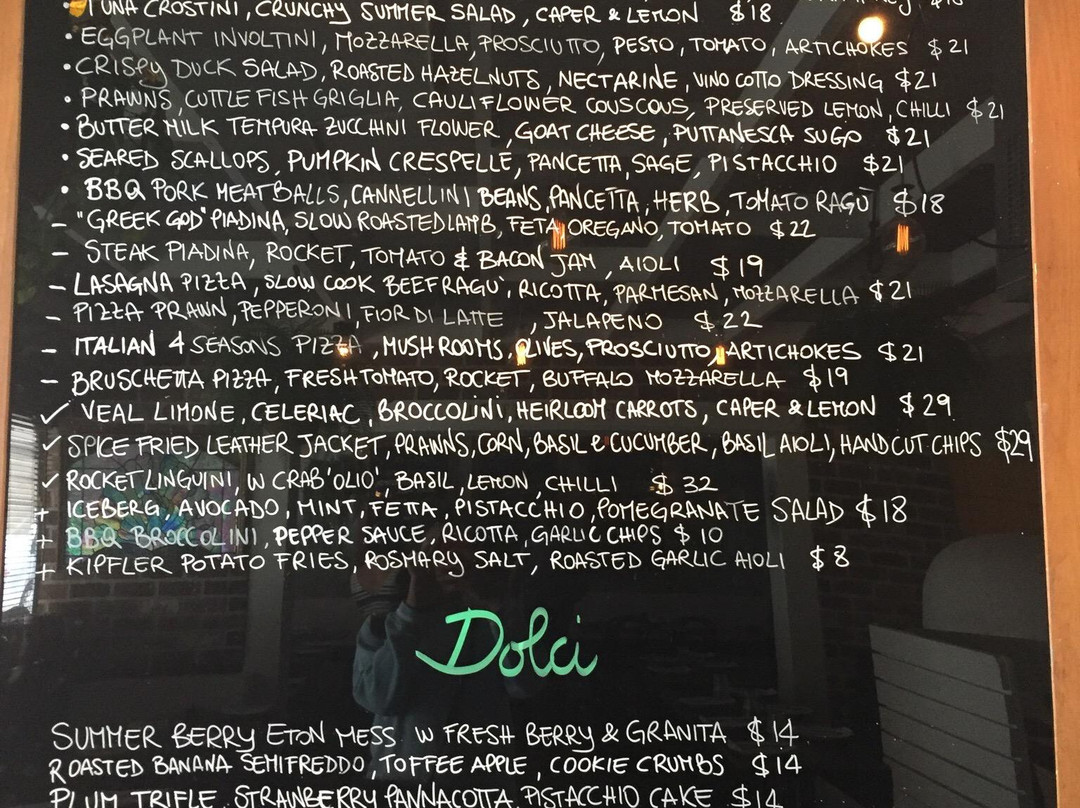 TUNA CROSTINI, CRUNCHY SUMMER SALAD, CAPER & LEMON $18
• EGGPLANT INVOLTINI, MOZZARELLA, PROSCIUTTO, PESTO, TOMATO, ARTICHOKES $21
• CRISPY DUCK SALAD, ROASTED HAZELNUTS, NECTARINE, VINO COTTO DRESSING $21
• PRAWNS, CUTTLE FISH GRIGLIA, CAULIFLOWER COUSCOUS, PRESERVED LEMON, CHILLI $21
• BUTTER MILK TEMPURA ZUCCHINI FLOWER, GOAT CHEESE, PUTTANESCA SUGO $21
• SEARED SCALLOPS, PUMPKIN CRESPELLE, PANCETTA, SAGE, PISTACCHIO $21
• BBQ PORK MEATBALLS, CANNELLINI BEANS, PANCETTA, HERB, TOMATO RAGÙ $18
- "GREEK GOD" PIADINA, SLOW ROASTED LAMB, FETA, OREGANO, TOMATO $22
- STEAK PIADINA, ROCKET, TOMATO & BACON JAM, AIOLI $19
- LASAGNA PIZZA, SLOW COOK BEEF RAGU', RICOTTA, PARMESAN, MOZZARELLA $21
- PIZZA PRAWN, PEPPERONI, FIOR DI LATTE, JALAPENO $22
- ITALIAN 4 SEASONS PIZZA, MUSHROOMS, OLIVES, PROSCIUTTO, ARTICHOKES $21
- BRUSCHETTA PIZZA, FRESH TOMATO, ROCKET, BUFFALO MOZZARELLA $19
✓ VEAL LIMONE, CELERIAC, BROCCOLINI, HEIRLOOM CARROTS, CAPER & LEMON $29
✓ SPICE FRIED LEATHER JACKET, PRAWNS, CORN, BASIL & CUCUMBER, BASIL AIOLI, HANDCUT CHIPS $29
✓ ROCKET LINGUINI, W CRAB 'OLIO', BASIL, LEMON, CHILLI $32
+ ICEBERG, AVOCADO, MINT, FETTA, PISTACCHIO, POMEGRANATE SALAD $18
+ BBQ BROCCOLINI, PEPPER SAUCE, RICOTTA, GARLIC CHIPS $10
+ KIPFLER POTATO FRIES, ROSMARY SALT, ROASTED GARLIC AIOLI $8
Dolci
SUMMER BERRY ETON MESS W FRESH BERRY & GRANITA $14
ROASTED BANANA SEMIFREDDO, TOFFEE APPLE, COOKIE CRUMBS $14
PLUM TRIFLE, STRAWBERRY PANNACOTTA, PISTACCHIO CAKE $14